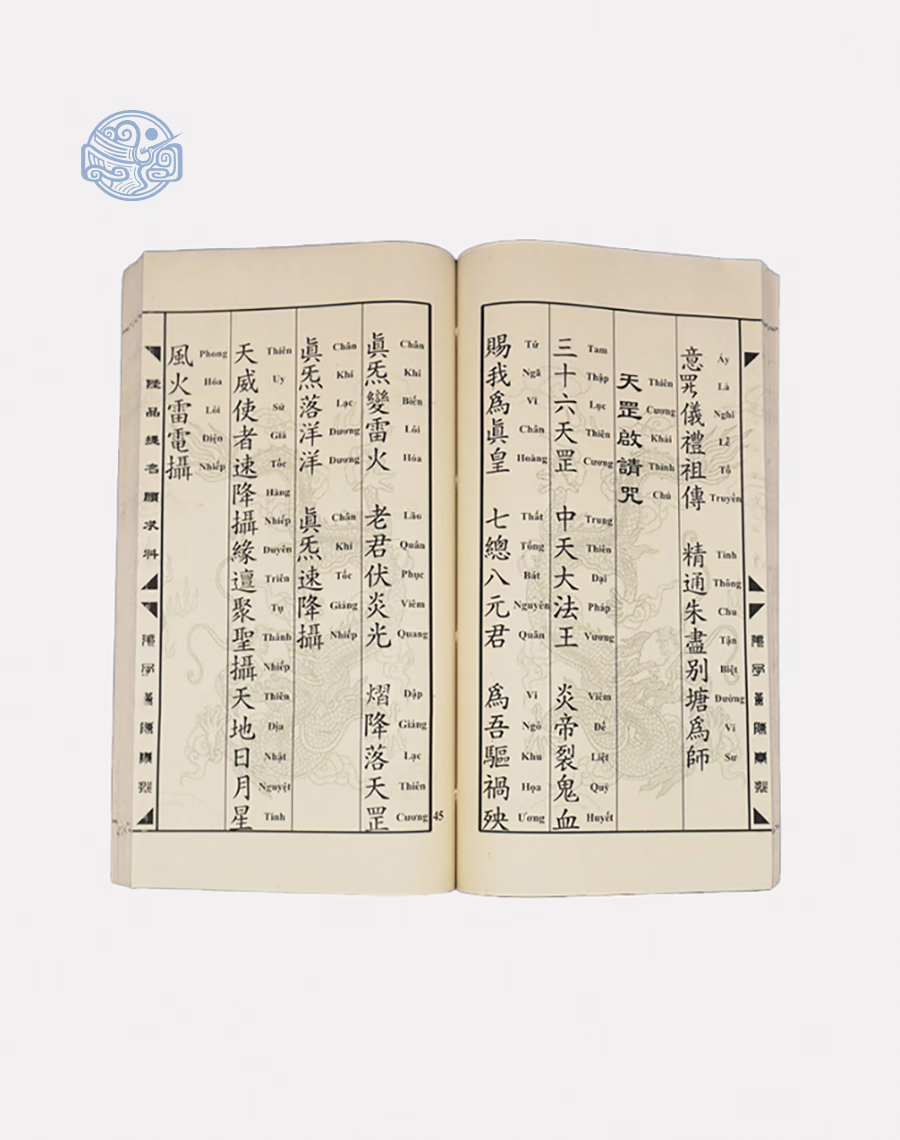 意 儀禮祖傳 精通朱盡別塘爲師
Áy Là Nghi Lễ Tổ Truyền Tinh Thông Chu Tận Biệt Đường Vi Sư
天罡啟請咒
Thiên Cương Khải Thỉnh Chú
三十六天罡 中天大法王 炎帝裂鬼血
Tam Thập Lục Thiên Cương Trung Thiên Đại Pháp Vương Viêm Đế Liệt Quỷ Huyết
賜我爲眞皇 七總八元君 爲吾驅禍殃
Tứ Ngã Vi Chân Hoàng Thất Tổng Bát Nguyên Quân Vi Ngô Khu Họa Ương
眞炁變雷火 老君伏炎光 熠降落天罡
Chân Khí Biến Lôi Hỏa Lão Quân Phục Viêm Quang Dập Giáng Lạc Thiên Cương
眞炁落洋洋 眞炁速降攝
Chân Khí Lạc Dương Dương Chân Khí Tốc Giáng Nhiếp
天威使者速降攝緣邅聚聖攝天地日月星
Thiên Uy Sứ Giả Tốc Hàng Nhiếp Duyên Triên Tụ Thánh Nhiếp Thiên Địa Nhật Nguyệt Tinh
風火雷電攝
Phong Hỏa Lôi Điện Nhiếp
45